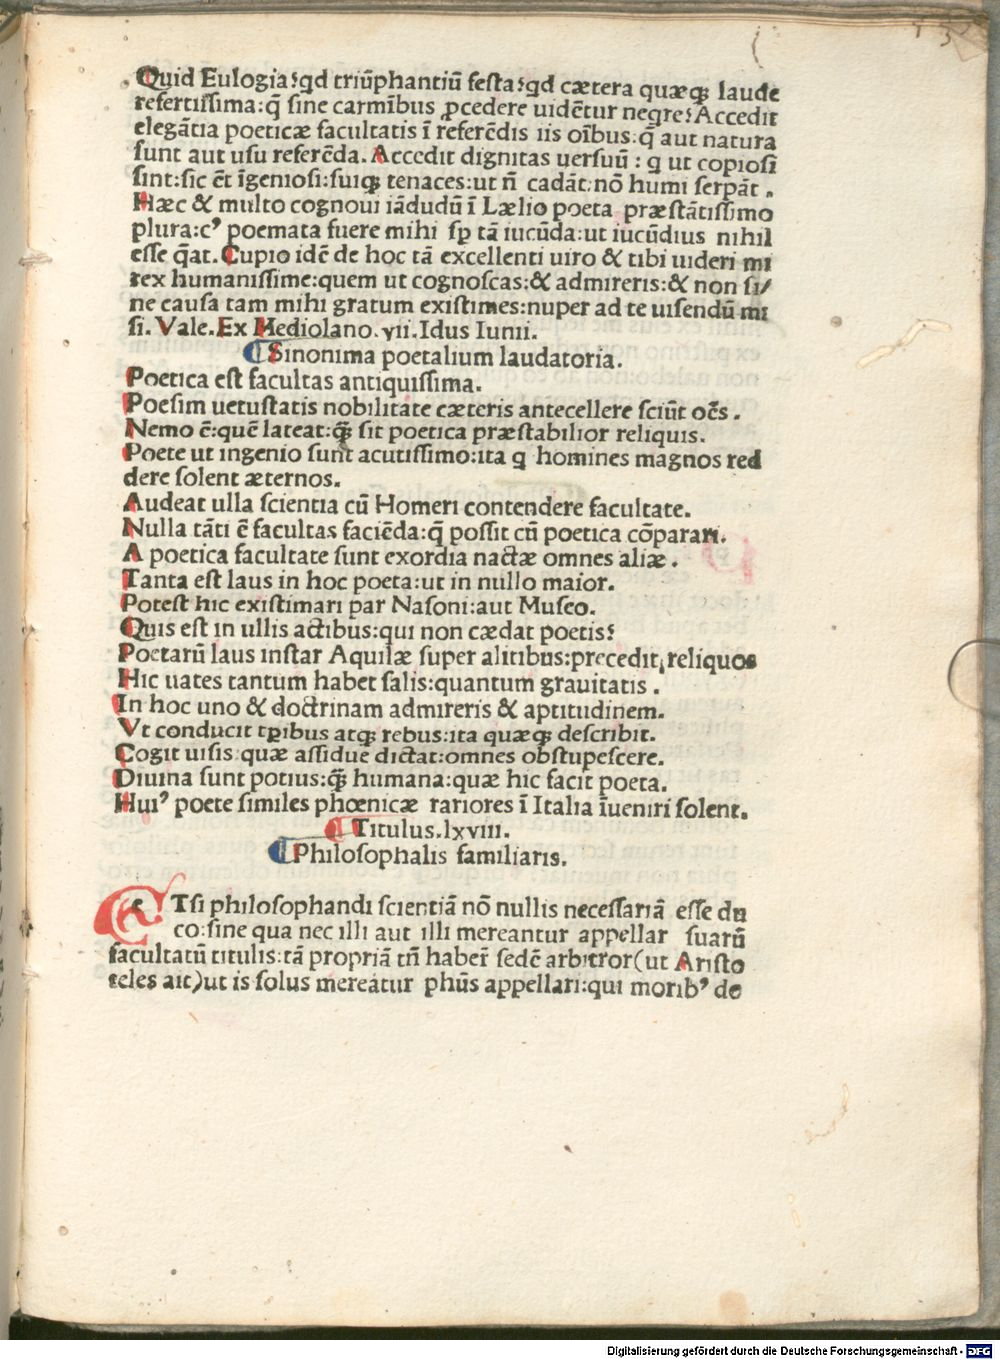 Quid Eulogia?qd triũphantiũ festa?qd cætera quæqꝫ laude
refertissima:q̃ sine carmĩbus ꝓcedere uidẽtur neqre?Accedit
elegãtia poeticæ facultatis ĩ referẽdis iis oĩbus:q̃ aut natura
sunt aut usu referẽda. Accedit dignitas uersuũ : q ut copiosi
sint:sic ẽt ĩgeniosi:suiqꝫ tenaces:ut ñ cadãt:nõ humi serpãt .
Hæc & multo cognoui iãdudũ ĩ Lælio poeta præstãtissimo
plura:cꝰ poemata fuere mihi sꝑ tã iucũda:ut iucũdius nihil
esse q̃at. Cupio idẽ de hoc tã excellenti uiro & tibi uideri mi
rex humanissime:quem ut cognoscas:& admireris:& non si/
ne causa tam mihi gratum existimes:nuper ad te uisendũ mi
si. Vale. Ex Mediolano. yii. Idus Iunii.
Sinonima poetalium laudatoria.
Poetica est facultas antiquissima.
Poesim uetustatis nobilitate cæteris antecellere sciũt oẽs .
Nemo ẽ:quẽ lateat:qꝫ̃ sit poetica præstabilior reliquis.
Poete ut ingenio sunt acutissimo:ita q homines magnos red
dere solent æternos.
Audeat ulla scientia cũ Homeri contendere facultate.
Nulla tãti ẽ facultas faciẽda:q̃ possit cũ poetica cõparari.
A poetica facultate sunt exordia nactæ omnes aliæ .
Tanta est laus in hoc poeta:ut in nullo maior.
Potest hic existimari par Nasoni:aut Museo.
Quis est in ullis actibus:qui non cædat poetis?
Poetarũ laus instar Aquilæ super alitibus:precedit reliquos
Hic uates tantum habet salis:quantum grauitatis .
In hoc uno & doctrinam admireris & aptitudinem.
Vt conducit tꝑibus atqꝫ rebus:ita quæqꝫ describit.
Cogit uisis:quæ assidue dictat:omnes obstupescere.
Diuina sunt potius:qꝫ̃ humana:quæ hic facit poeta.
Huiꝰ poete similes phœnicæ rariores ĩ Italia ĩueniri solent.
Titulus.lxviii.
Philosophalis familiaris.
ETsi philosophandi scientiã nõ nullis necessariã esse du
co:sine qua nec illi aut illi mereantur appellar suarũ
facultatũ titulis:tã propriã tñ haber̃ sedẽ arbitror(ut Aristo
teles ait)ut is solus mereatur phũs appellari:qui moribꝰ de
Digitalisierung gefördert durch die Deutsche Forschungsgemeinschaft - DFG